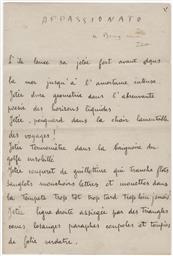 APPASSIONATO
S'il lance sa jetée fort avant dans
la mer jusqu'à l'amertume intense.
Jetée dure geometrie dans l'
poesie des horizons liquides
Jetée, poignard dans la chair lamentable
des voyages!
Jetée Termometre dans la baignoire du
golfe
Jetée couperet de guillotine qui tranche flots
sanglots mouchoirs lettres et mouettes dans
la Tempete Trop tôt trop tard Trop bien
Jetée ligne droite assiegée par des Triangles
cones losanges paraphes coupoles et toupies
de folie verdatre.